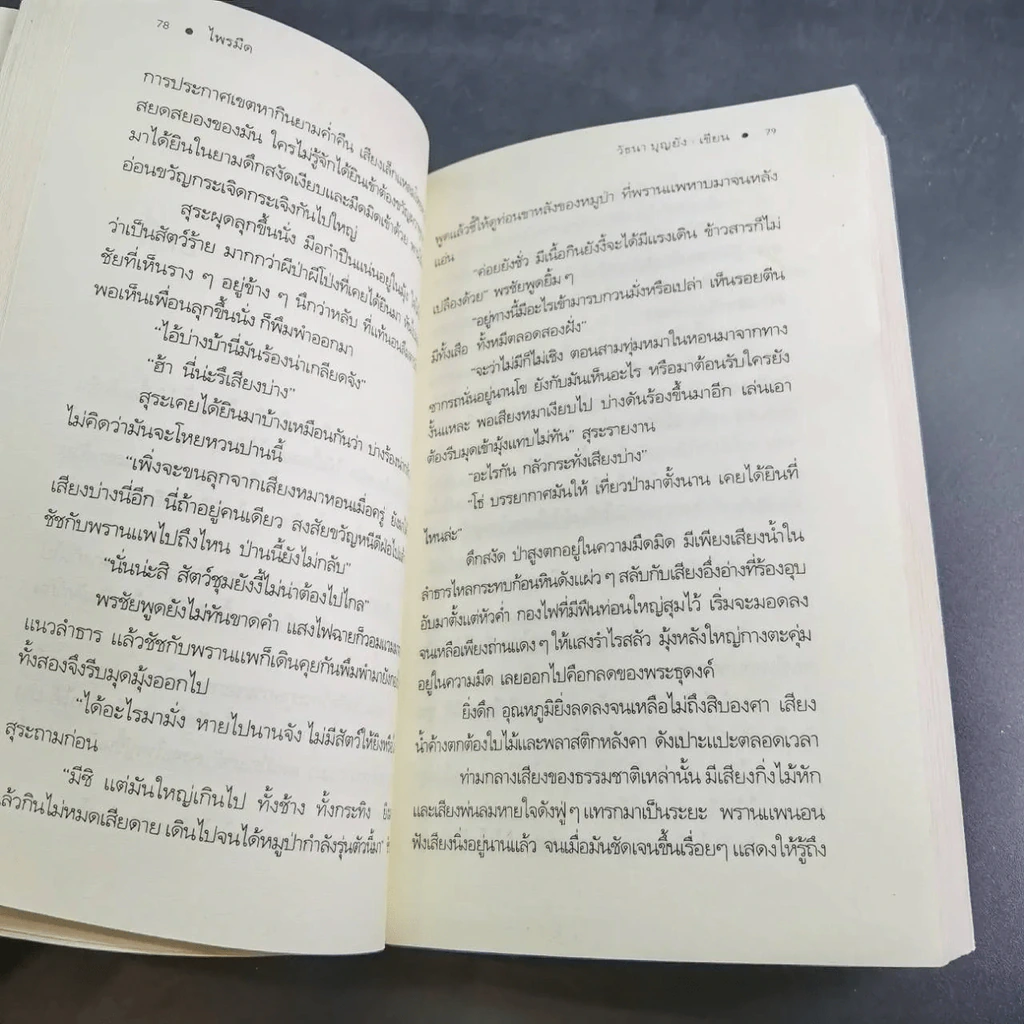 78 ● ไพรมืด
การประกาศเขตหากินยามค่ำคืน เสียงเล็กแหลม
สยดสยองของมัน ใครไม่รู้จักได้ยินเข้าต้องขวัญ
มาได้ยินในยามดึกสงัดเงียบและมืดมิดเข้าด้วย
อ่อนขวัญกระเจิดกระเจิงกันไปใหญ่
สุระผุดลุกขึ้นนั่ง มือกำปืนแน่นอยู่ใน
ว่าเป็นสัตว์ร้าย มากกว่าผีป่าผีโป่งที่เคยได้ยินมา
ชัยที่เห็นราง ๆ อยู่ข้าง ๆ นึกว่าหลับ ที่แท้นอน
พอเห็นเพื่อนลุกขึ้นนั่ง ก็พึมพำออกมา
“ไอ้บ่างบ้านี่มันร้องน่าเกลียดจัง”
“ฮ้า นี่น่ะรึเสียงบ่าง”
สุระเคยได้ยินมาบ้างเหมือนกันว่า บ่างร้อง
ไม่คิดว่ามันจะโหยหวนปานนี้
“เพิ่งจะขนลุกจากเสียงหมาหอนเมื่อครู่
เสียงบ่างนี่อีก นี่ถ้าอยู่คนเดียว สงสัยขวัญหนีดีฝ่อ
ชัชกับพรานแพไปถึงไหน ป่านนี้ยังไม่กลับ”
“นั่นน่ะสิ สัตว์ชุมยังงี้ไม่น่าต้องไปไกล”
พรชัยพูดยังไม่ทันขาดคำ แสงไฟฉายก็วอมแวม
แนวลำธาร แล้วชัชกับพรานแพก็เดินคุยกันพึมพำมา
ทั้งสองจึงรีบมุดมุ้งออกไป
“ได้อะไรมามั่ง หายไปนานจัง ไม่มีสัตว์ให้ยิง
สุระถามก่อน
“มีซิ แต่มันใหญ่เกินไป ทั้งช้าง ทั้งกระทิง
แล้วกินไม่หมดเสียดาย เดินไปจนได้หมูป่ากำลังรุ่นตัวนี้มา”
วัธนา บุญยัง : เขียน ● 79
พูดแล้วชี้ให้ดูท่อนขาหลังของหมูป่า ที่พรานแพหาบมาจนหลัง
แอ่น
“ค่อยยังชั่ว มีเนื้อกินยังงี้จะได้มีแรงเดิน ข้าวสารก็ไม่
เปลืองด้วย” พรชัยพูดยิ้ม ๆ
“อยู่ทางนี้มีอะไรเข้ามารบกวนมั่งหรือเปล่า เห็นรอยตีน
มีทั้งเสือ ทั้งหมีตลอดสองฝั่ง”
“จะว่าไม่มีก็ไม่เชิง ตอนสามทุ่มหมาในหอนมาจากทาง
ซากรถนั่นอยู่นานโข ยังกับมันเห็นอะไร หรือมาต้อนรับใครยัง
งั้นแหละ พอเสียงหมาเงียบไป บ่างดันร้องขึ้นมาอีก เล่นเอา
ต้องรีบมุดเข้ามุ้งแทบไม่ทัน” สุระรายงาน
“อะไรกัน กลัวกระทั่งเสียงบ่าง”
“โธ่ บรรยากาศมันให้ เที่ยวป่ามาตั้งนาน เคยได้ยินที่
ไหนล่ะ”
ดึกสงัด ป่าสูงตกอยู่ในความมืดมิด มีเพียงเสียงน้ำใน
ลำธารไหลกระทบก้อนหินดังแผ่ว ๆ สลับกับเสียงอึ่งอ่างที่ร้องอุบ
อับมาตั้งแต่หัวค่ำ กองไฟที่มีฟืนท่อนใหญ่สุมไว้ เริ่มจะมอดลง
จนเหลือเพียงถ่านแดง ๆ ให้แสงรำไรสลัว มุ้งหลังใหญ่กางตะคุ่ม
อยู่ในความมืด เลยออกไปคือกลดของพระธุดงค์
ยิ่งดึก อุณหภูมิยิ่งลดลงจนเหลือไม่ถึงสิบองศา เสียง
น้ำค้างตกต้องใบไม้และพลาสติกหลังคา ดังเปาะแปะตลอดเวลา
ท่ามกลางเสียงของธรรมชาติเหล่านั้น มีเสียงกิ่งไม้หัก
และเสียงพ่นลมหายใจดังฟู่ ๆ แทรกมาเป็นระยะ พรานแพนอน
ฟังเสียงนิ่งอยู่นานแล้ว จนเมื่อมันชัดเจนขึ้นเรื่อยๆ แสดงให้รู้ถึง